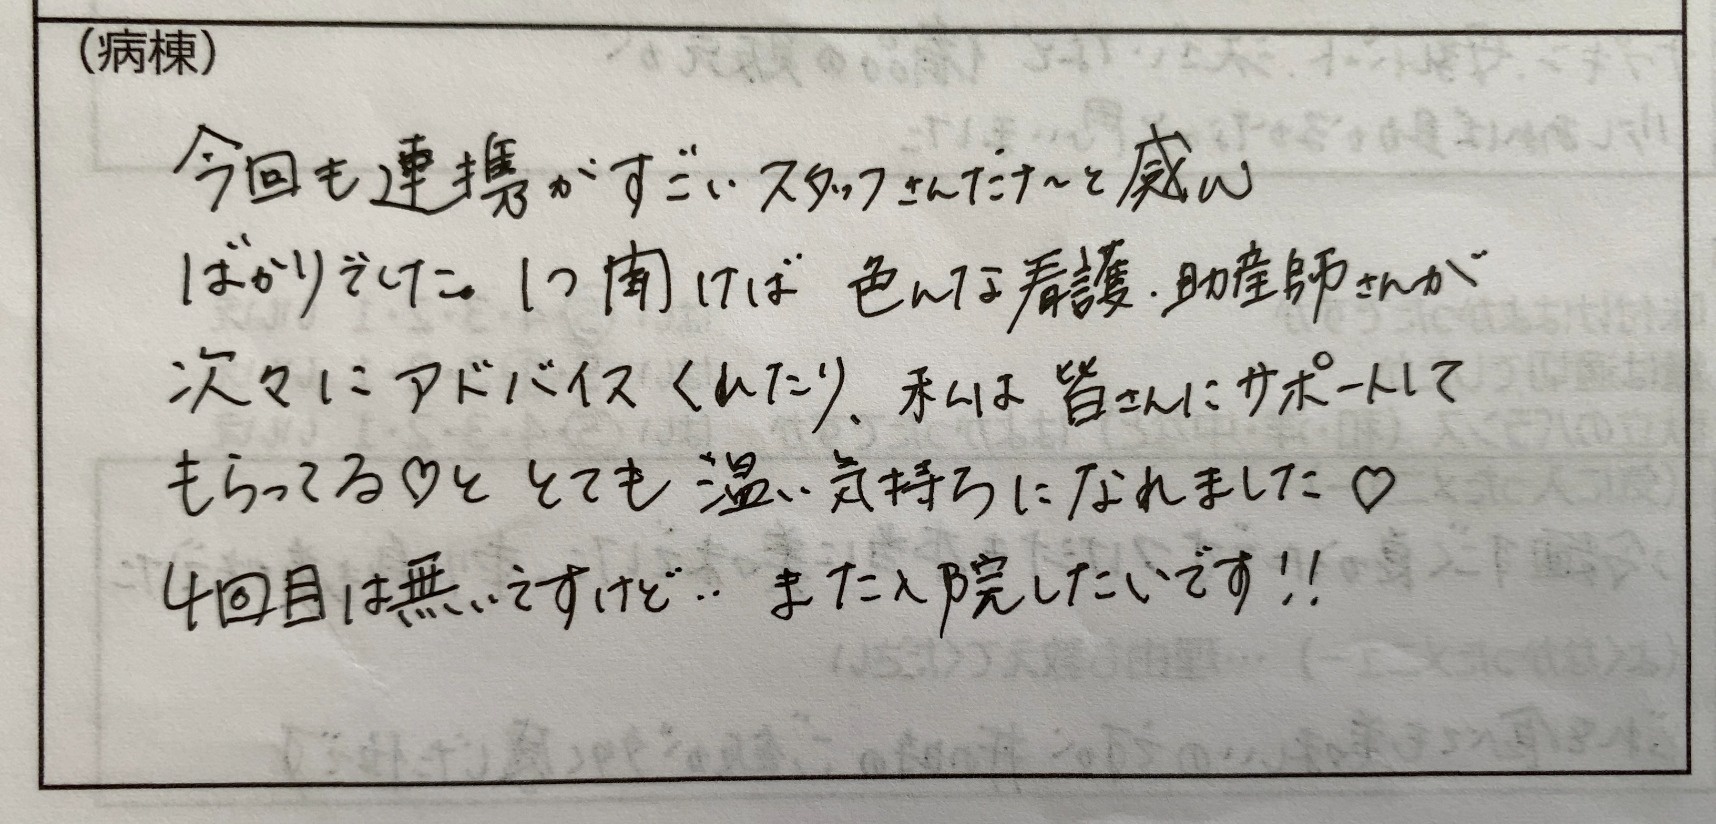 (病棟)
今回も連携がすごいスタッフさんだナ〜と感心
ばかりでした。1つ聞けば 色んな看護・助産師さんが
次々にアドバイスくれたり、私は皆さんにサポートして
もらってる♡と とても温い気持ちになれました♡
4回目は無いですけど‥ また入院したいです!!